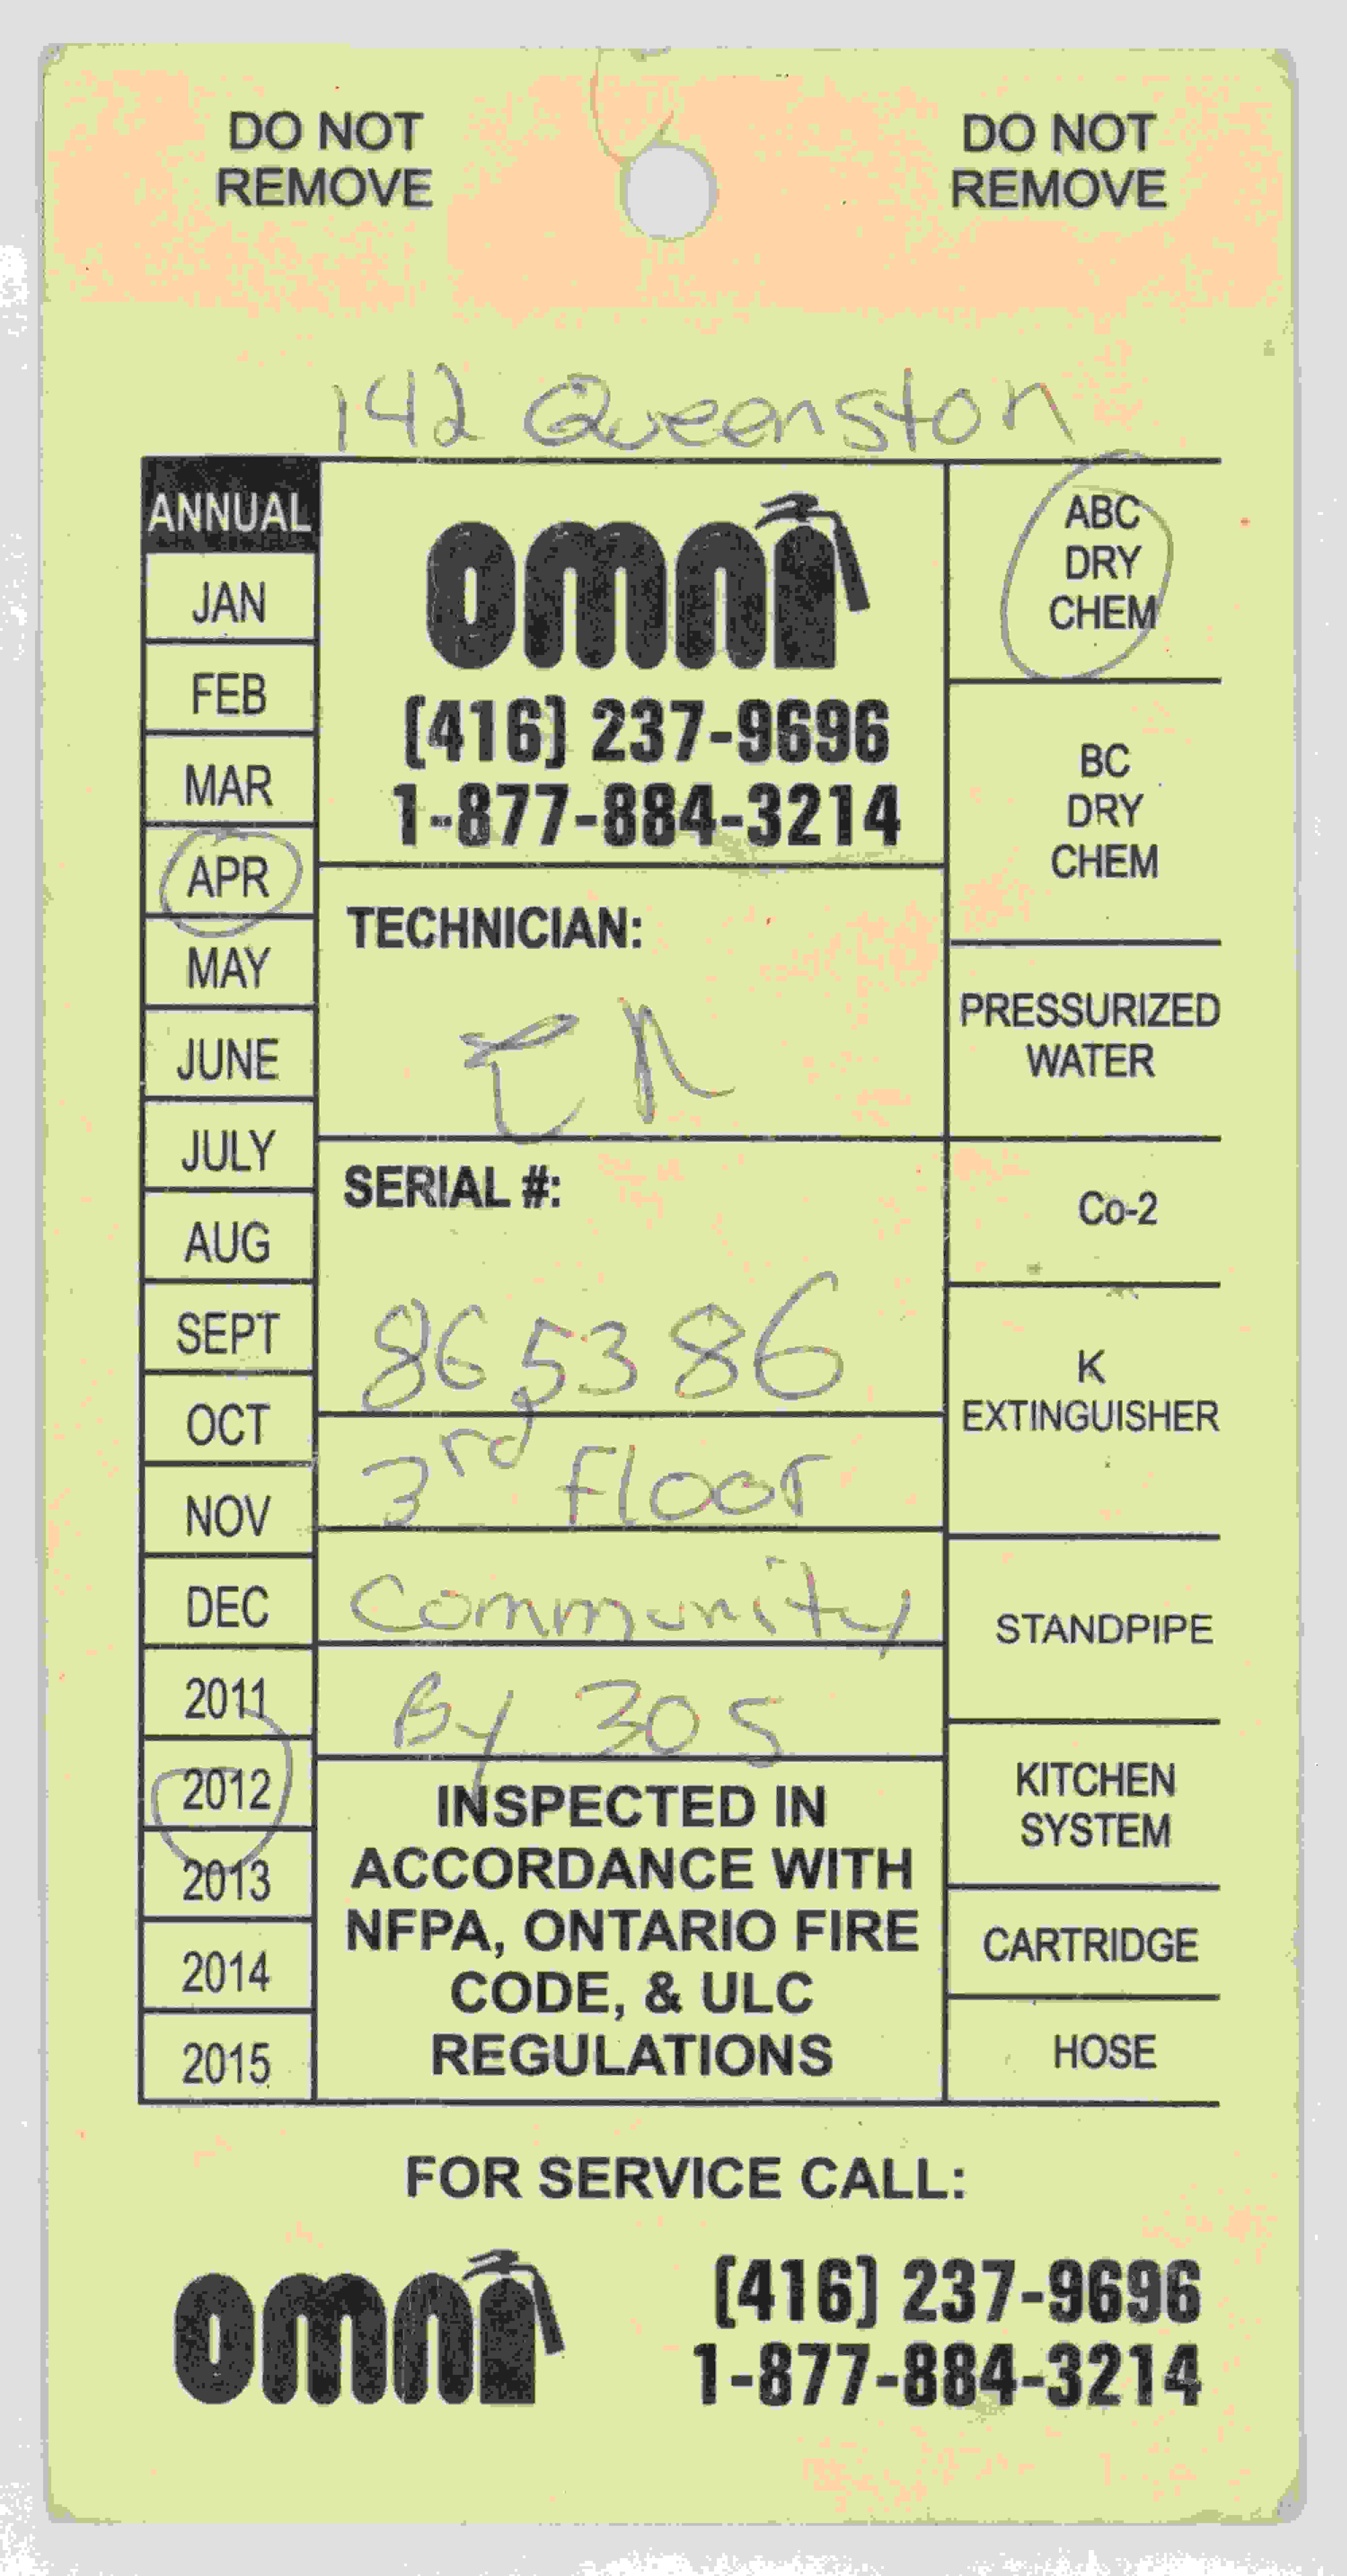 DO NOT
REMOVE
DO NOT
REMOVE
142 Queenston
ANNUAL
JAN
FEB
MAR
APR
MAY
JUNE
JULY
AUG
SEPT
OCT
NOV
DEC
2011
2012
2013
2014
2015
omni
(416) 237-9696
1-877-884-3214
TECHNICIAN:
SERIAL #:
865386
3rd Floor
Community
By 305
INSPECTED IN
ACCORDANCE WITH
NFPA, ONTARIO FIRE
CODE, & ULC
REGULATIONS
ABC
DRY
CHEM
BC
DRY
CHEM
PRESSURIZED
WATER
Co-2
K
EXTINGUISHER
STANDPIPE
KITCHEN
SYSTEM
CARTRIDGE
HOSE
FOR SERVICE CALL:
omni
(416) 237-9696
1-877-884-3214